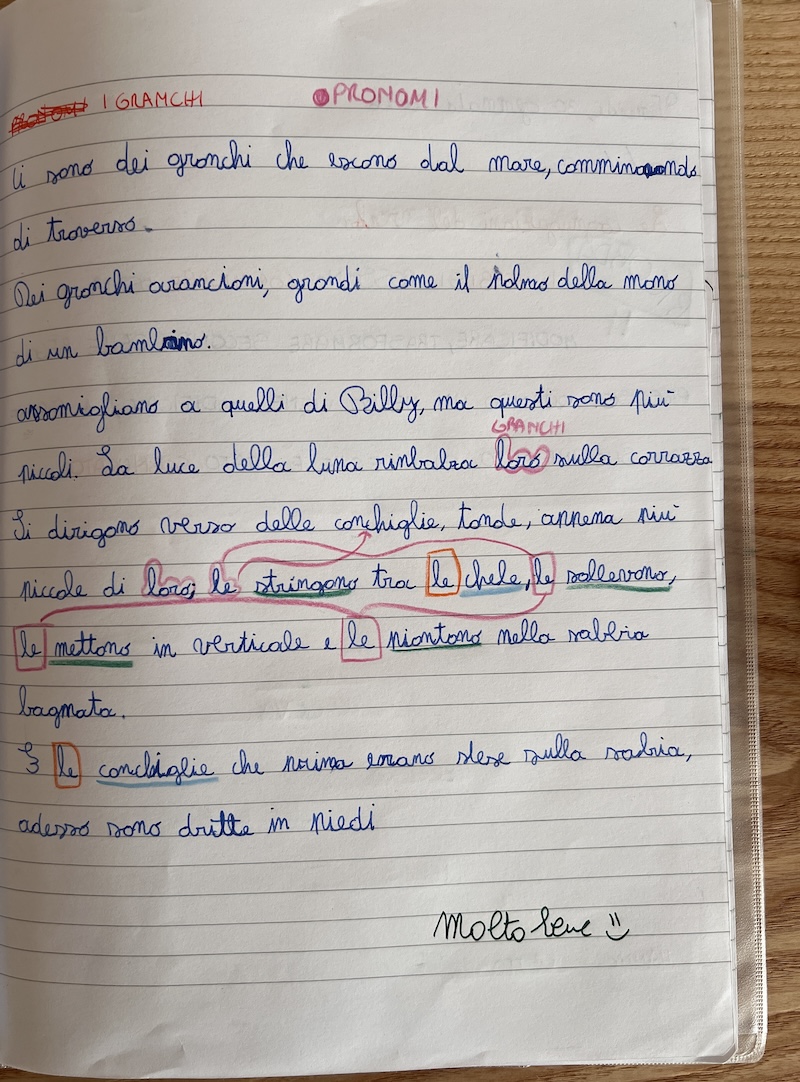 I GRANCHI PRONOMI
Ci sono dei granchi che escono dal mare, camminando
di traverso.
Dei granchi arancioni, grandi come il palmo della mano
di un bambino.
assomigliano a quelli di Billy, ma questi sono più
GRANCHI
piccoli. La luce della luna rimbalza loro sulla corrazza
Si dirigono verso delle conchiglie, tonde, appena più
piccole di loro; le stringono tra le chele, le sollevano,
le mettono in verticale e le piantano nella sabbia
bagnata.
E le conchiglie che prima erano stese sulla sabbia,
adesso sono dritte in piedi
Molto bene